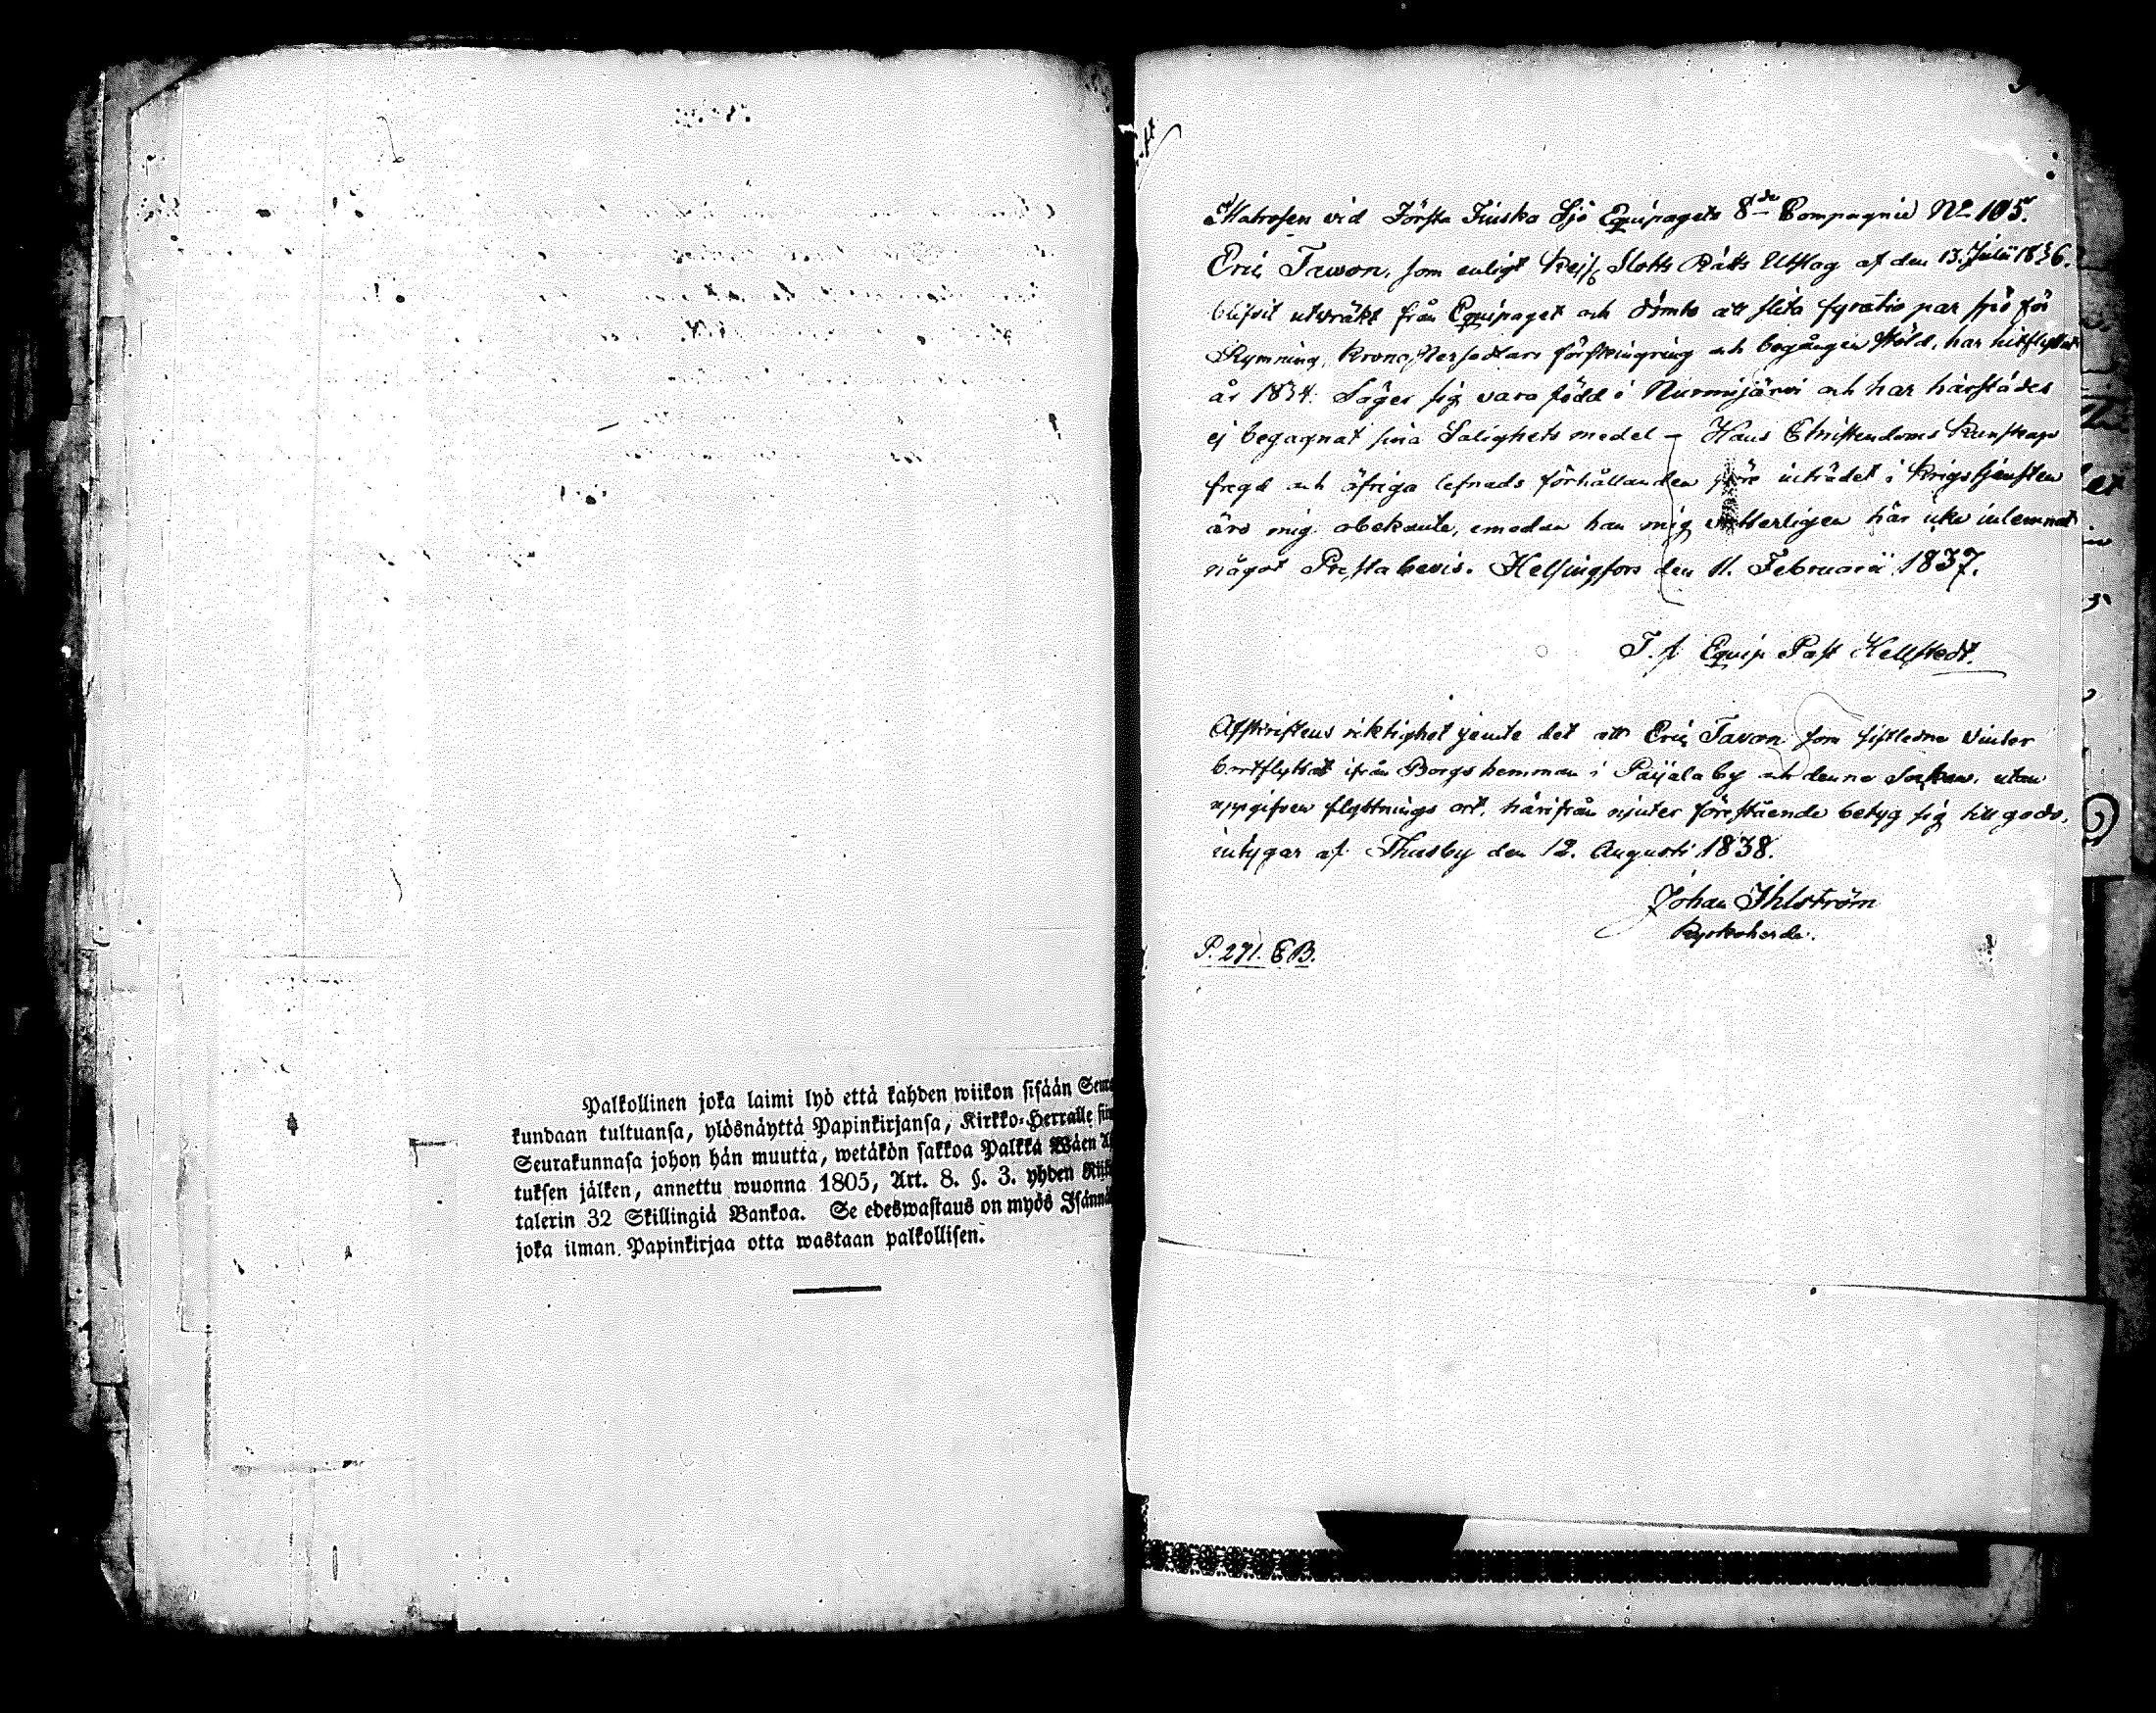 Palkollinen joka laimi lyö että kahden wiikon sisään Seura
kundaan tultuansa, ylösnäyttä Papinkirjansa, Kirkko-Herralle siin
Seurakunnasa johon hän muutta, wetäkön sakkoa Palkka Wäen A
tuksen jälken, annettu wuonna 1805, Art. 8. §. 3. yhden Riik
talerin 32 Skillingiä Bankoa. Se edeswastaus on myös Isännä
joka ilman Papinkirjaa otta wastaan palkollisen.
Matrosen vid Första Finska Sjö Equipagets 8de Compagnie No 105.
Eric Tawon, som enligt Kejs. Slotts Rätts Utslag af den 13. Julii 1836.
blifvit utvräkt från Equipaget och dömts att slita fyratio par spö för
Rymning, Krono förskingring och begången stöld, har hitflyttat
år 1834. Säger sig vara född i Nurmijärvi och har härstädes
ej begagnat sina Salighets medel – Hans Christendoms Kunskap
fregd och öfriga lefnads förhållanden före inträdet i Krigstjensten
äro mig obekante, emedan han mig vetterligen här icke inlemnat
något Prestabevis. Helsingfors den 11. Februarii 1837.
T. f. Equip Past Hellstedt.
Afskriftens riktighet jemte det att Eric Tavon som sistledne vinter
bortflyttat ifrån Borgs hemman i Paijala by och denna Socken, utan
uppgifven flyttnings ort, härifrån njuter förestående betyg sig till godo,
intygar af Thusby den 12. Augusti 1838.
Johan Ihlström
Kyrkoherde.
P. 271. CB.